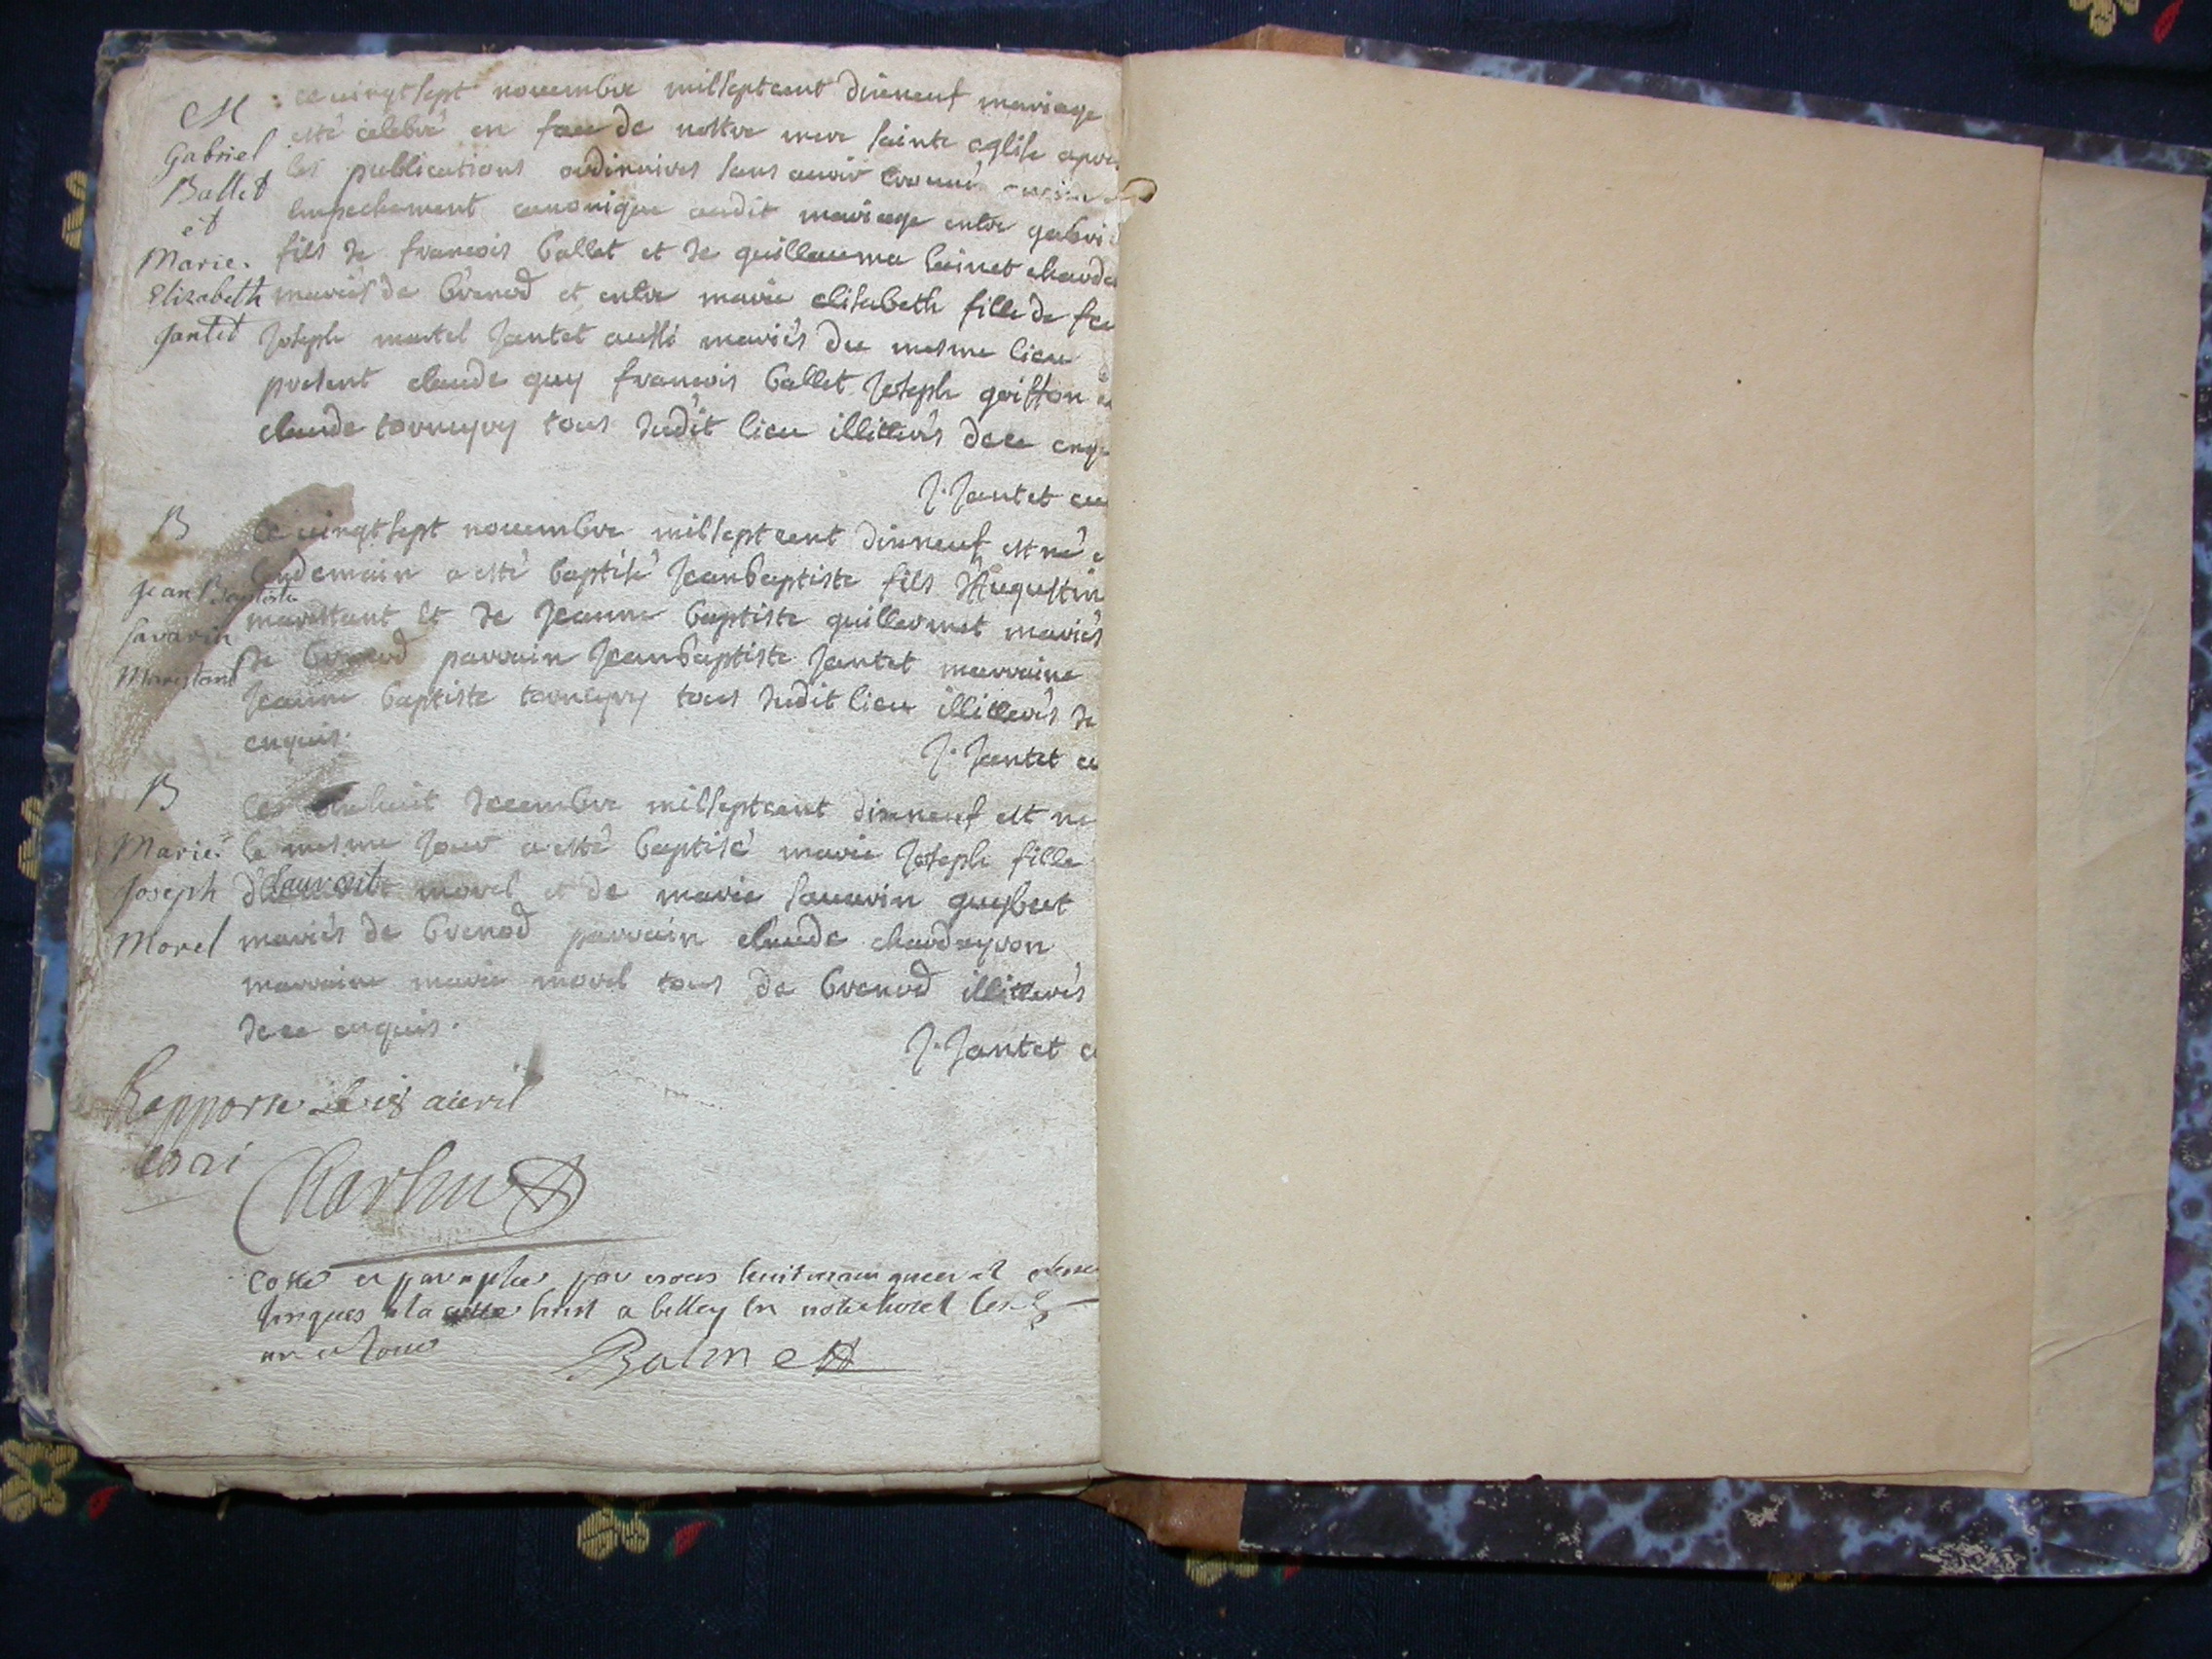 M
Gabriel
Ballet
et
Marie
Elizabeth
Jantet
ce vingtsept novembre milseptcent dixneuf mariage
esté celebré en face de nostre mere sainte eglise apre
les publications ordinaires sans avoir trouvé
empechement canonique audit mariage entre gabri
fils de francois ballet et de guillauma chard
mariés de brenod et entre marie elisabeth fille de
Joseph martel Jantet aussi mariés du mesme lieu
present claude guy francois ballet Joseph griffon
claude tornyry tous dudit lieu illitterés de ce enq
J. Jantet cu
B
Jean Baptiste
savarin
Marestant
ce vingtsept novembre milseptcent dixneuf est né e
lendemain a esté baptisé Jeanbaptiste fils d'Augustin
marestant et de Jeanne baptiste guillermet mariés
de brenod parrain Jeanbaptiste Jantet marraine
Jeanne baptiste tornyry tous dudit lieu illitterés de
enquis.
J. Jantet cu
B
Marie
Joseph
Morel
huit decembre milseptcent dixneuf est ne
le mesme jour a esté baptisé marie Joseph fille
d'Laurent morel et de marie savarin guybet
mariés de brenod parrain claude chardeyron
marraine marie morel tous de brenod illitterés
de ce enquis.
J. Jantet c
Rapporté le 18 avril
Cotté et paraphé par nous huit
jusques a la huit a belley en notre hotel les
an et jour
Balme